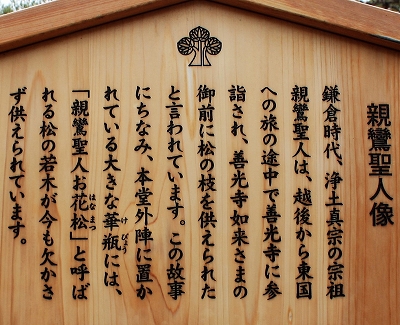 親鸞聖人像
鎌倉時代、浄土真宗の宗祖
親鸞聖人は、越後から東国
への旅の途中で善光寺に参
詣され、善光寺如来さまの
御前に松の枝を供えられた
と言われています。この故事
にちなみ、本堂外陣に置か
れている大きな華瓶には、
けびょう
「親鸞聖人お花松」と呼ば
はなまつ
れる松の若木が今も欠かさ
ず供えられています。